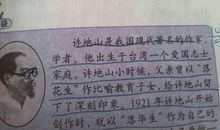 许地山是我国现代著名的作家、
学者，他出生于台湾一个爱国志士
家庭。许地山小时候，父亲曾以“落
花生”作比喻教育子女，给许地山留
下了深刻印象。1921年许地山开始
创作时，就以“落华生”作为自己的